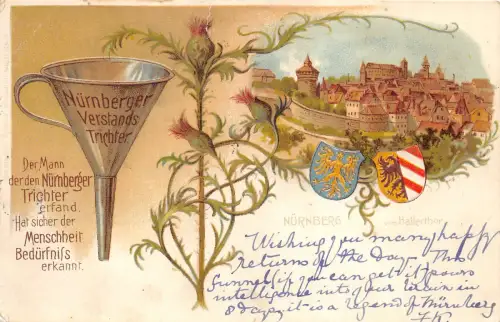 Nürnberger
Verstands
Trichter.
Der Mann
der den Nürnberger
Trichter
erfand,
Hat sicher der
Menschheit
Bedürfniss
erkannt.
NÜRNBERG
Hallerthor.
Wishing you many happy
returns of the day. This
funnel if you can get it pours
intelligence into your brain in
8 days, it is a legend of Nürnberg